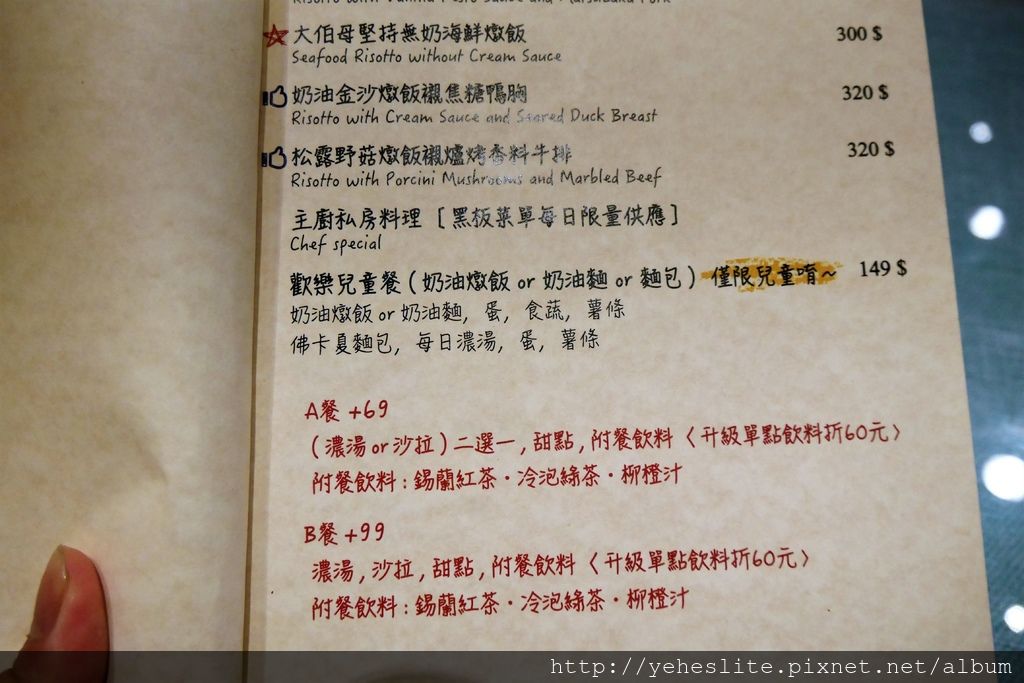 Risotto with Vanilla Pesto Sauce and Matsuzaka Pork
大伯母堅持無奶海鮮燉飯 300 $
Seafood Risotto without Cream Sauce
奶油金沙燉飯襯焦糖鴨胸 320 $
Risotto with Cream Sauce and Seared Duck Breast
松露野菇燉飯襯爐烤香料牛排 320 $
Risotto with Porcini Mushrooms and Marbled Beef
主廚私房料理 [ 黑板菜單每日限量供應 ]
Chef special
歡樂兒童餐 ( 奶油燉飯 or 奶油麵 or 麵包 ) 僅限兒童唷~ 149 $
奶油燉飯 or 奶油麵, 蛋, 食蔬, 薯條
佛卡夏麵包, 每日濃湯, 蛋, 薯條
A餐 +69
( 濃湯 or 沙拉 ) 二選一 , 甜點 , 附餐飲料〈升級單點飲料折60元〉
附餐飲料 : 錫蘭紅茶・冷泡綠茶・柳橙汁
B餐 +99
濃湯 , 沙拉 , 甜點 , 附餐飲料〈升級單點飲料折60元〉
附餐飲料 : 錫蘭紅茶・冷泡綠茶・柳橙汁
http://yeheslite.pixnet.net/album